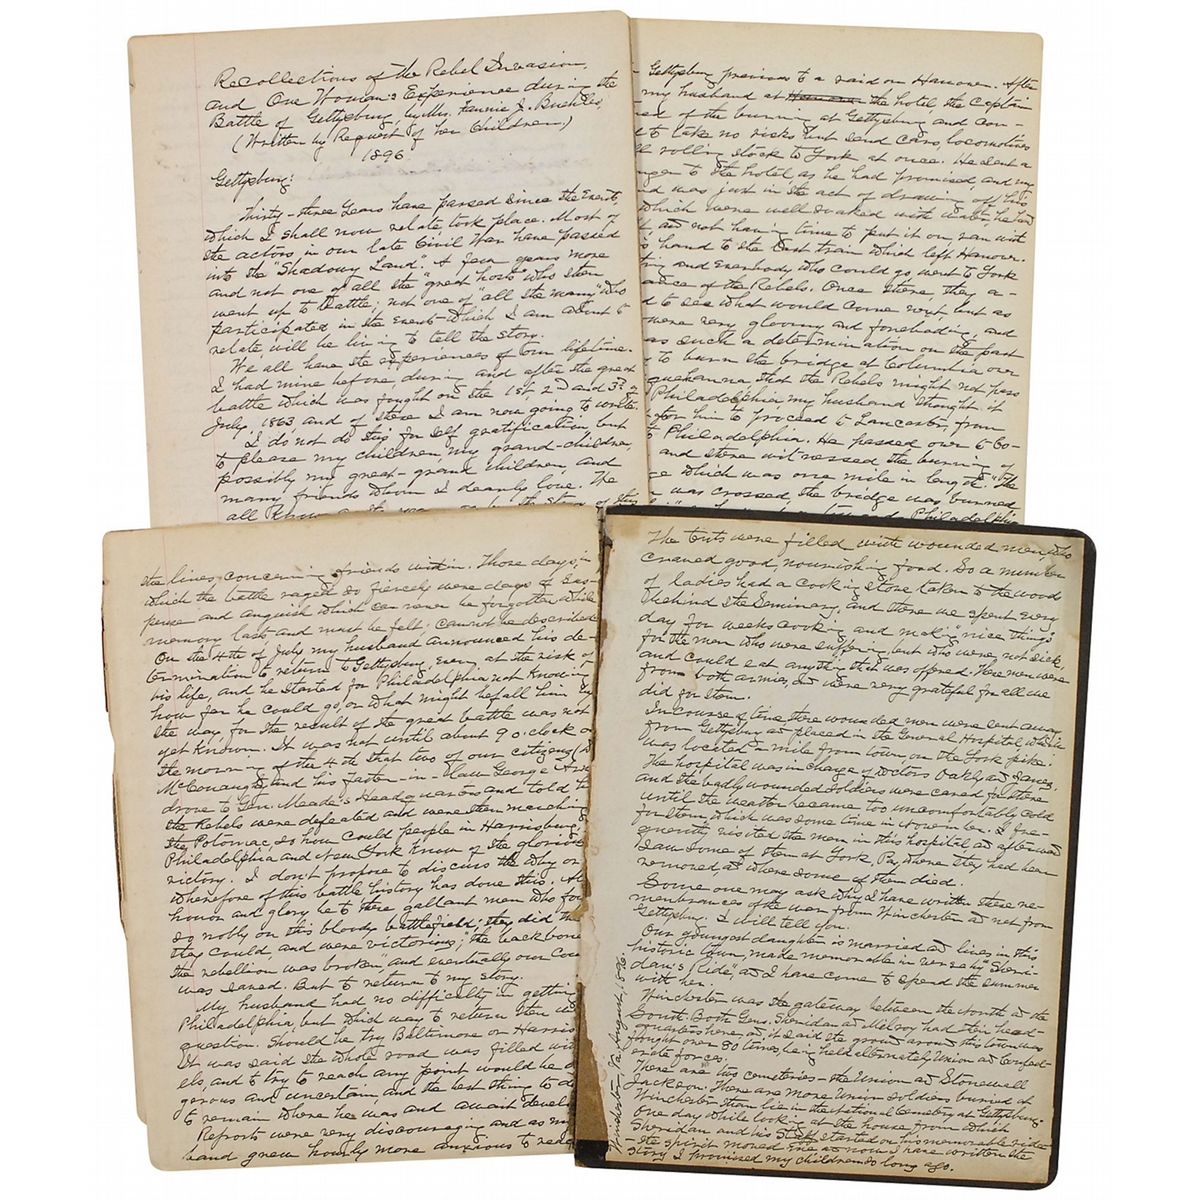 Recollections of the Rebel Invasion,
and One Woman's Experience during the
Battle of Gettysburg, by Mrs. Fannie J. Buehler,
(Written by Request of her Children,)
1896
Gettysburg:
Thirty-three Years have passed since the Events,
which I shall now relate, took place. Most of
the actors, in our late Civil War have passed
into the "Shadowy Land". A few years more
and not one of all the "great host" who then
went up to battle, not one of "all the many" who
participated in the Event which I am about to
relate, will be living to tell the story.
We all have the experiences of our lifetime.
I had mine before, during and after the great
battle which was fought on the 1st, 2nd and 3rd of
July, 1863, and of these I am now going to write.
I do not do this for self gratification, but
to please my children, my grand-children,
possibly my great-grand children, and
many friends whom I dearly love. The
all know
Gettysburg previous to a raid on Hanover. After
my husband at Hanover the hotel, the Captain
of the burning at Gettysburg and con-
to take no risks but send cars, locomotives
rolling stock to York at once. He sent a
to the hotel as he had promised, and my
was just in the act of drawing off his
which were well soaked with water, he had
and not having time to put it on, ran with
hand to the last train which left Hanover.
and everybody who could go, went to York
of the Rebels. Once there, they a-
to see what would come next, but as
were very gloomy and foreboding, and
was such a determination on the part
to burn the bridge at Columbia over
that the Rebels might not pass
Philadelphia, my husband thought it
for him to proceed to Lancaster, from
to Philadelphia. He passed over to Co-
and there witnessed the burning of
which was one mile in length. "The
was crossed, the bridge was burned
the lines, concerning friends within. Those days, in
which the battle raged so fiercely were days of sus-
pense and anguish which can never be forgotten while
memory lasts and must be felt: cannot be described
On the 4th of July my husband announced his de-
termination to return to Gettysburg, even at the risk of
his life, and he started for Philadelphia not knowing
how far he could go, or what might befall him by
the way, for the result of the great battle was not
yet known. It was not until about 9 o'clock on
the morning of the 4th that two of our citizens
McConaughy and his father-in-law George
drove to Gen. Meade's Headquarters and told
the Rebels were defeated and were then marching
the Potomac, so how could people in Harrisburg,
Philadelphia and New York know of the glorious
victory. I don't propose to discuss the why or
wherefore of this battle, history has done this. All
honor and glory be to these gallant men who fou
so nobly on this bloody battlefield; they did
they could, and were victorious; "the back bone
the rebellion was broken," and eventually our Cou
was saved. But to return to my story.
My husband had no difficulty in getting
Philadelphia, but which way to return then
question. Should he try Baltimore or Harris
It was said the whole road was filled with
els, and to try to reach any point would be
gerous and uncertain, and the best thing to do
to remain where he was and await devel
Reports were very discouraging and as my
band grew hourly more anxious to
The tents were filled with wounded men who
craved good, nourishing food. So a number
of ladies had a cooking stove taken to the wood
behind the Seminary, and there we spent every
day for weeks cooking and making "nice things"
for the men who were suffering, but who were not sick,
and could eat anything that was offered. These men were
from both armies, & were very grateful for all we
did for them.
In course of time these wounded men were sent away
from Gettysburg or placed in the General Hospital, which
was located a mile from town, on the York pike.
The hospital was in charge of Doctors Oakly and James,
and the badly wounded Soldiers were cared for there
until the weather became too uncomfortably cold
for them which was some time in November. I fre-
quently visited the men in this hospital and afterward
I saw some of them at York, Pa, where they had been
removed and where some of them died.
Some one may ask why I have written these re-
membrances of the war from Winchester and not from
Gettysburg. I will tell you.
Our youngest daughter is married and lives in this
historic town, made memorable in verse by "Sheri-
dan's Ride," and I have come to spend the summer
with her.
Winchester was the gateway between the North and the
South. Both Gens. Sheridan and Milroy had their head-
quarters here, and it is said the ground around this town was
fought over 80 times, being held alternately Union and Confed-
erate forces.
There are two cemeteries - the Union and Stonewall
Jackson. There are more Union soldiers buried at
Winchester than lie in the National Cemetery at Gettysburg.
One day while looking at the house from which
Sheridan and his Staff started on his memorable ride
the spirit moved me and now I have written the
story I promised my children so long ago.
Winchester Va. August, 1896.